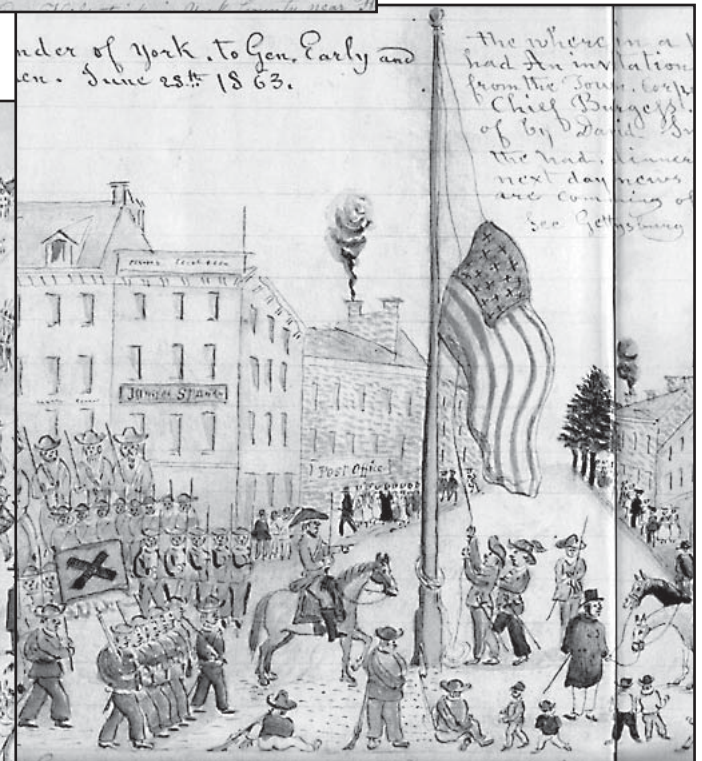 nder of York. to Gen. Early and
en. June 28th 1863.
the where in a
had An invitation
from the Town. Corp
Chief Burgess.
of by David.
the had. dinner
next day news
are comming of
See Gettysburg
Post Office